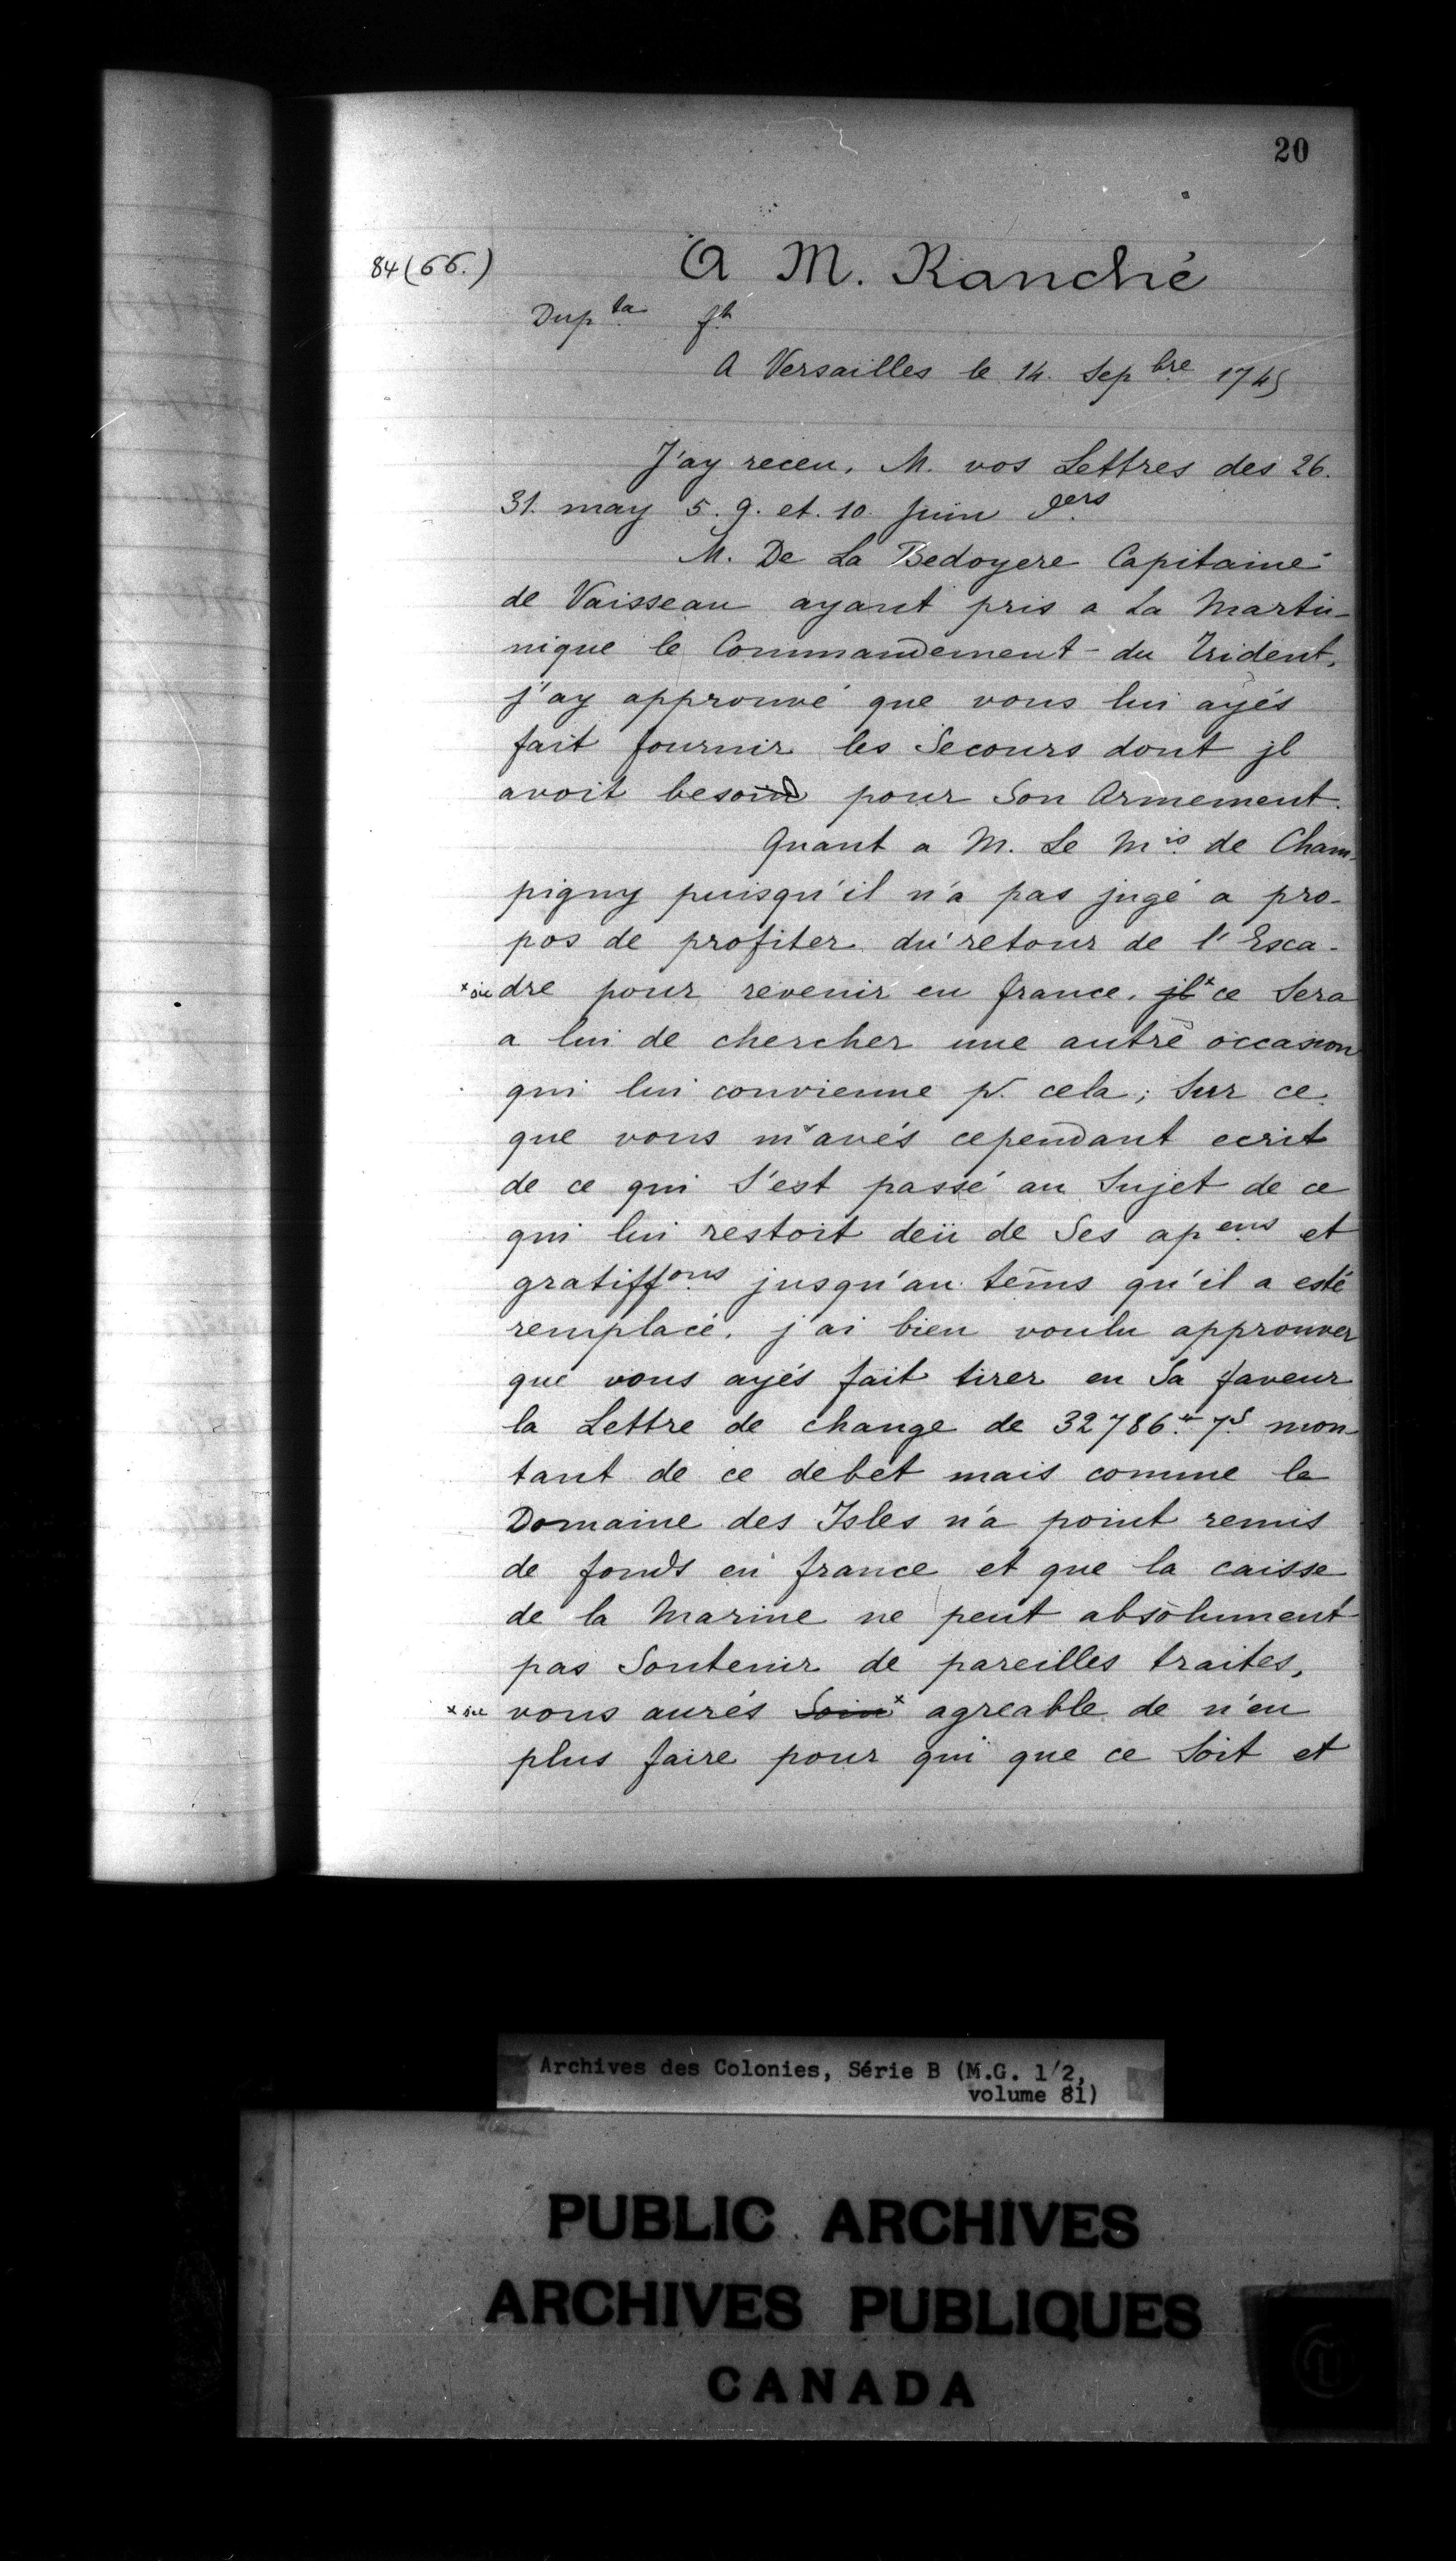 20
84 (66.)
A M. Ranché
Dup ta fh
A Versailles le 14. Sepbre 1745
J'ay receu, M. vos Lettres des 26.
31. may 5. 9. et. 10. Juin ders
M. De La Bedoyere Capitaine
de Vaisseau ayant pris a La Marti-
nique le Commandement du Trident,
j'ay approuvé que vous lui ayés
fait fournir les Secours dont jl
avoit besoin pour Son Armement.
Quant a M. Le Mis de Cham-
pigny puisqu'il n'a pas jugé a pro-
pos de profiter du retour de l'Esca-
x sic dre pour revenir en france. jl x ce Sera
a lui de chercher une autre occasion
qui lui convienne pr cela; Sur ce
que vous m'avés cependant ecrit
de ce qui S'est passé au Sujet de ce
qui lui restoit deü de Ses apens et
gratiffons jusqu'au tems qu'il a esté
remplacé. j'ai bien voulu approuver
que vous ayés fait tirer en Sa faveur
la Lettre de change de 32786.tt 7.s mon-
tant de ce debet mais comme le
Domaine des Isles n'a point remis
de fonds en france et que la caisse
de la Marine ne peut absolument
pas Soutenir de pareilles traites,
x sic vous aurés Soin x agreable de n'en
plus faire pour qui que ce Soit et
Archives des Colonies, Série B (M.G. 1/2,
volume 81)
PUBLIC ARCHIVES
ARCHIVES PUBLIQUES
CANADA